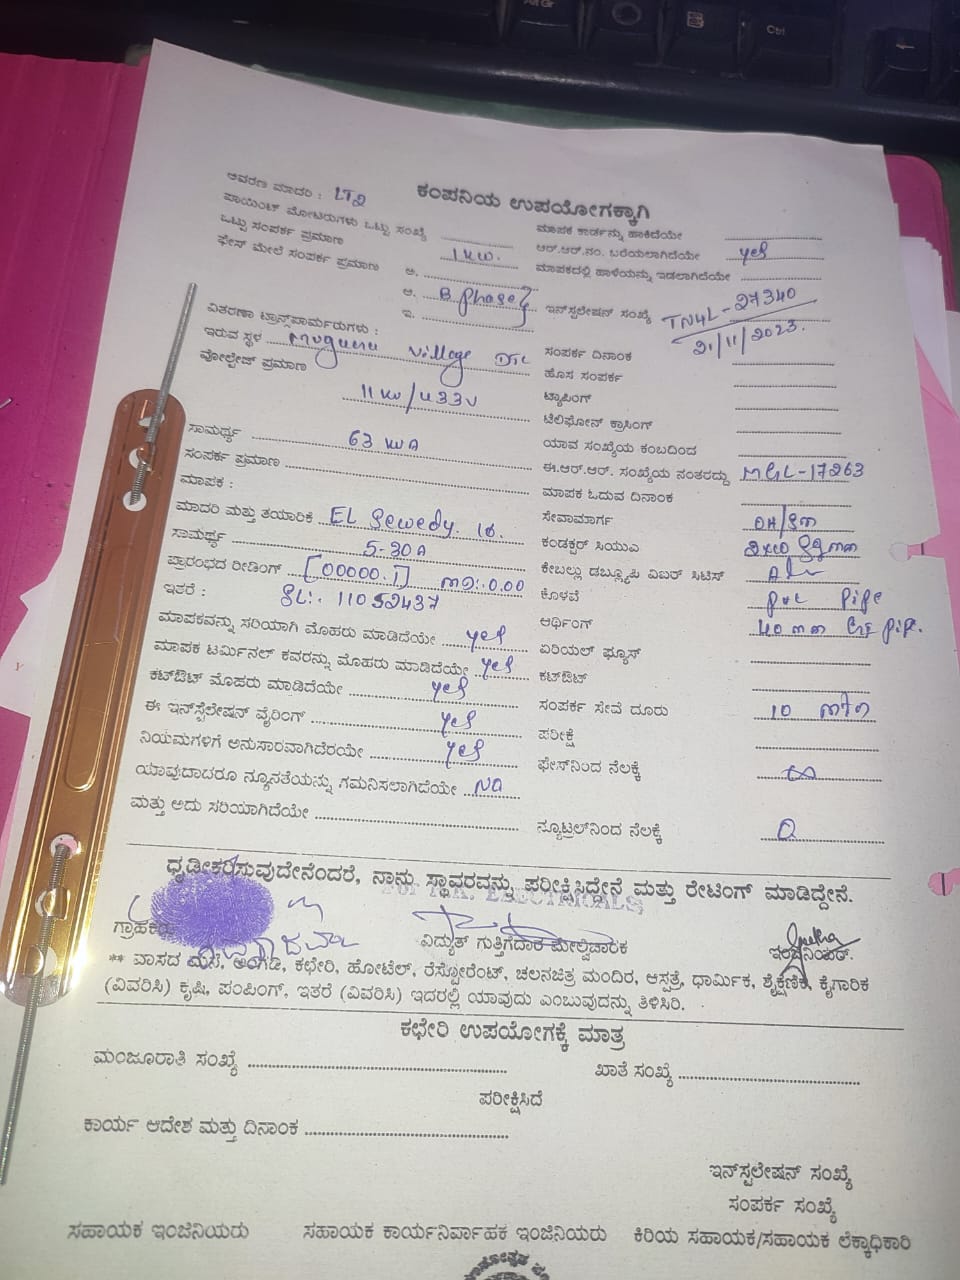 ಕಂಪನಿಯ ಉಪಯೋಗಕ್ಕಾಗಿ
ಆವರಣ ಮಾದರಿ : LT2
ಪಾಯಿಂಟ್ ಮೋಟರುಗಳು ಒಟ್ಟು ಸಂಖ್ಯೆ
ಒಟ್ಟು ಸಂಪರ್ಕ ಪ್ರಮಾಣ 1 KW.
ಫೇಸ್ ಮೇಲೆ ಸಂಪರ್ಕ ಪ್ರಮಾಣ ಅ.
ಆ. B. phase
ಇ.
ವಿತರಣಾ ಟ್ರಾನ್ಸ್‌ಫಾರ್ಮರುಗಳು :
ಇರುವ ಸ್ಥಳ Village
ವೋಲ್ಟೇಜ್ ಪ್ರಮಾಣ
11 KV/433V
ಸಾಮರ್ಥ್ಯ 63 KVA
ಸಂಪರ್ಕ ಪ್ರಮಾಣ
ಮಾಪಕ :
ಮಾದರಿ ಮತ್ತು ತಯಾರಿಕೆ EL Sewedy.
ಸಾಮರ್ಥ್ಯ 5-30A
ಪ್ರಾರಂಭದ ರೀಡಿಂಗ್ [00000.1] MD:-0.00
ಇತರೆ : SL:- 11052437
ಮಾಪಕವನ್ನು ಸರಿಯಾಗಿ ಮೊಹರು ಮಾಡಿದೆಯೇ yes
ಮಾಪಕ ಟರ್ಮಿನಲ್ ಕವರನ್ನು ಮೊಹರು ಮಾಡಿದೆಯೇ yes
ಕಟ್‌ಔಟ್ ಮೊಹರು ಮಾಡಿದೆಯೇ yes
ಈ ಇನ್‌ಸ್ಟೆಲೇಷನ್ ವೈರಿಂಗ್ yes
ನಿಯಮಗಳಿಗೆ ಅನುಸಾರವಾಗಿದೆರಯೇ yes
ಯಾವುದಾದರೂ ನ್ಯೂನತೆಯನ್ನು ಗಮನಿಸಲಾಗಿದೆಯೇ NO
ಮತ್ತು ಅದು ಸರಿಯಾಗಿದೆಯೇ
ಮಾಪಕ ಕಾರ್ಡನ್ನು ಹಾಕಿದೆಯೇ
ಆರ್.ಆರ್.ನಂ. ಬರೆಯಲಾಗಿದೆಯೇ yes
ಮಾಪಕದಲ್ಲಿ ಹಾಳೆಯನ್ನು ಇಡಲಾಗಿದೆಯೇ
ಇನ್‌ಸ್ಟಲೇಷನ್ ಸಂಖ್ಯೆ TN4L-27340
21/11/2023.
ಸಂಪರ್ಕ ದಿನಾಂಕ
ಹೊಸ ಸಂಪರ್ಕ
ಟ್ಯಾಪಿಂಗ್
ಟೆಲಿಫೋನ್ ಕ್ರಾಸಿಂಗ್
ಯಾವ ಸಂಖ್ಯೆಯ ಕಂಬದಿಂದ
ಈ.ಆರ್.ಆರ್. ಸಂಖ್ಯೆಯ ನಂತರದ್ದು MGL-17263
ಮಾಪಕ ಓದುವ ದಿನಾಂಕ
ಸೇವಾಮಾರ್ಗ
ಕಂಡಕ್ಟರ್ ಸಿಯುವ
ಕೇಬಲ್ಲು ಡಬ್ಲ್ಯೂಪಿ ವಿಐರ್ ಸಿಟಿಸ್
ಕೊಳವೆ pvc pipe
ಆರ್ಥಿಂಗ್ 40 mm
ಏರಿಯಲ್ ಫ್ಯೂಸ್
ಕಟ್‌ಔಟ್
ಸಂಪರ್ಕ ಸೇವೆ ದೂರು 10 mtr
ಪರೀಕ್ಷೆ
ಫೇಸ್‌ನಿಂದ ನೆಲಕ್ಕೆ ∞
ನ್ಯೂಟ್ರಲ್‌ನಿಂದ ನೆಲಕ್ಕೆ 0
ಧೃಡೀಕರಿಸುವುದೇನೆಂದರೆ, ನಾನು ಸ್ಥಾವರವನ್ನು ಪರೀಕ್ಷಿಸಿದ್ದೇನೆ ಮತ್ತು ರೇಟಿಂಗ್ ಮಾಡಿದ್ದೇನೆ.
ELECTRICALS
ವಿದ್ಯುತ್ ಗುತ್ತಿಗೆದಾರ ಮೇಲ್ವಿಚಾರಕ ಇಂಜಿನಿಯರ್.
** ವಾಸದ ಮನೆ, ಅಂಗಡಿ, ಕಛೇರಿ, ಹೋಟೆಲ್, ರೆಸ್ಟೋರೆಂಟ್, ಚಲನಚಿತ್ರ ಮಂದಿರ, ಆಸ್ಪತ್ರೆ, ಧಾರ್ಮಿಕ, ಶೈಕ್ಷಣಿಕ, ಕೈಗಾರಿಕ
(ವಿವರಿಸಿ) ಕೃಷಿ, ಪಂಪಿಂಗ್, ಇತರೆ (ವಿವರಿಸಿ) ಇದರಲ್ಲಿ ಯಾವುದು ಎಂಬುವುದನ್ನು ತಿಳಿಸಿರಿ.
ಕಛೇರಿ ಉಪಯೋಗಕ್ಕೆ ಮಾತ್ರ
ಮಂಜೂರಾತಿ ಸಂಖ್ಯೆ ಖಾತೆ ಸಂಖ್ಯೆ
ಪರೀಕ್ಷಿಸಿದೆ
ಕಾರ್ಯ ಆದೇಶ ಮತ್ತು ದಿನಾಂಕ
ಇನ್‌ಸ್ಟಲೇಷನ್ ಸಂಖ್ಯೆ
ಸಂಪರ್ಕ ಸಂಖ್ಯೆ
ಸಹಾಯಕ ಇಂಜಿನಿಯರು ಸಹಾಯಕ ಕಾರ್ಯನಿರ್ವಾಹಕ ಇಂಜಿನಿಯರು ಕಿರಿಯ ಸಹಾಯಕ/ಸಹಾಯಕ ಲೆಕ್ಕಾಧಿಕಾರಿ